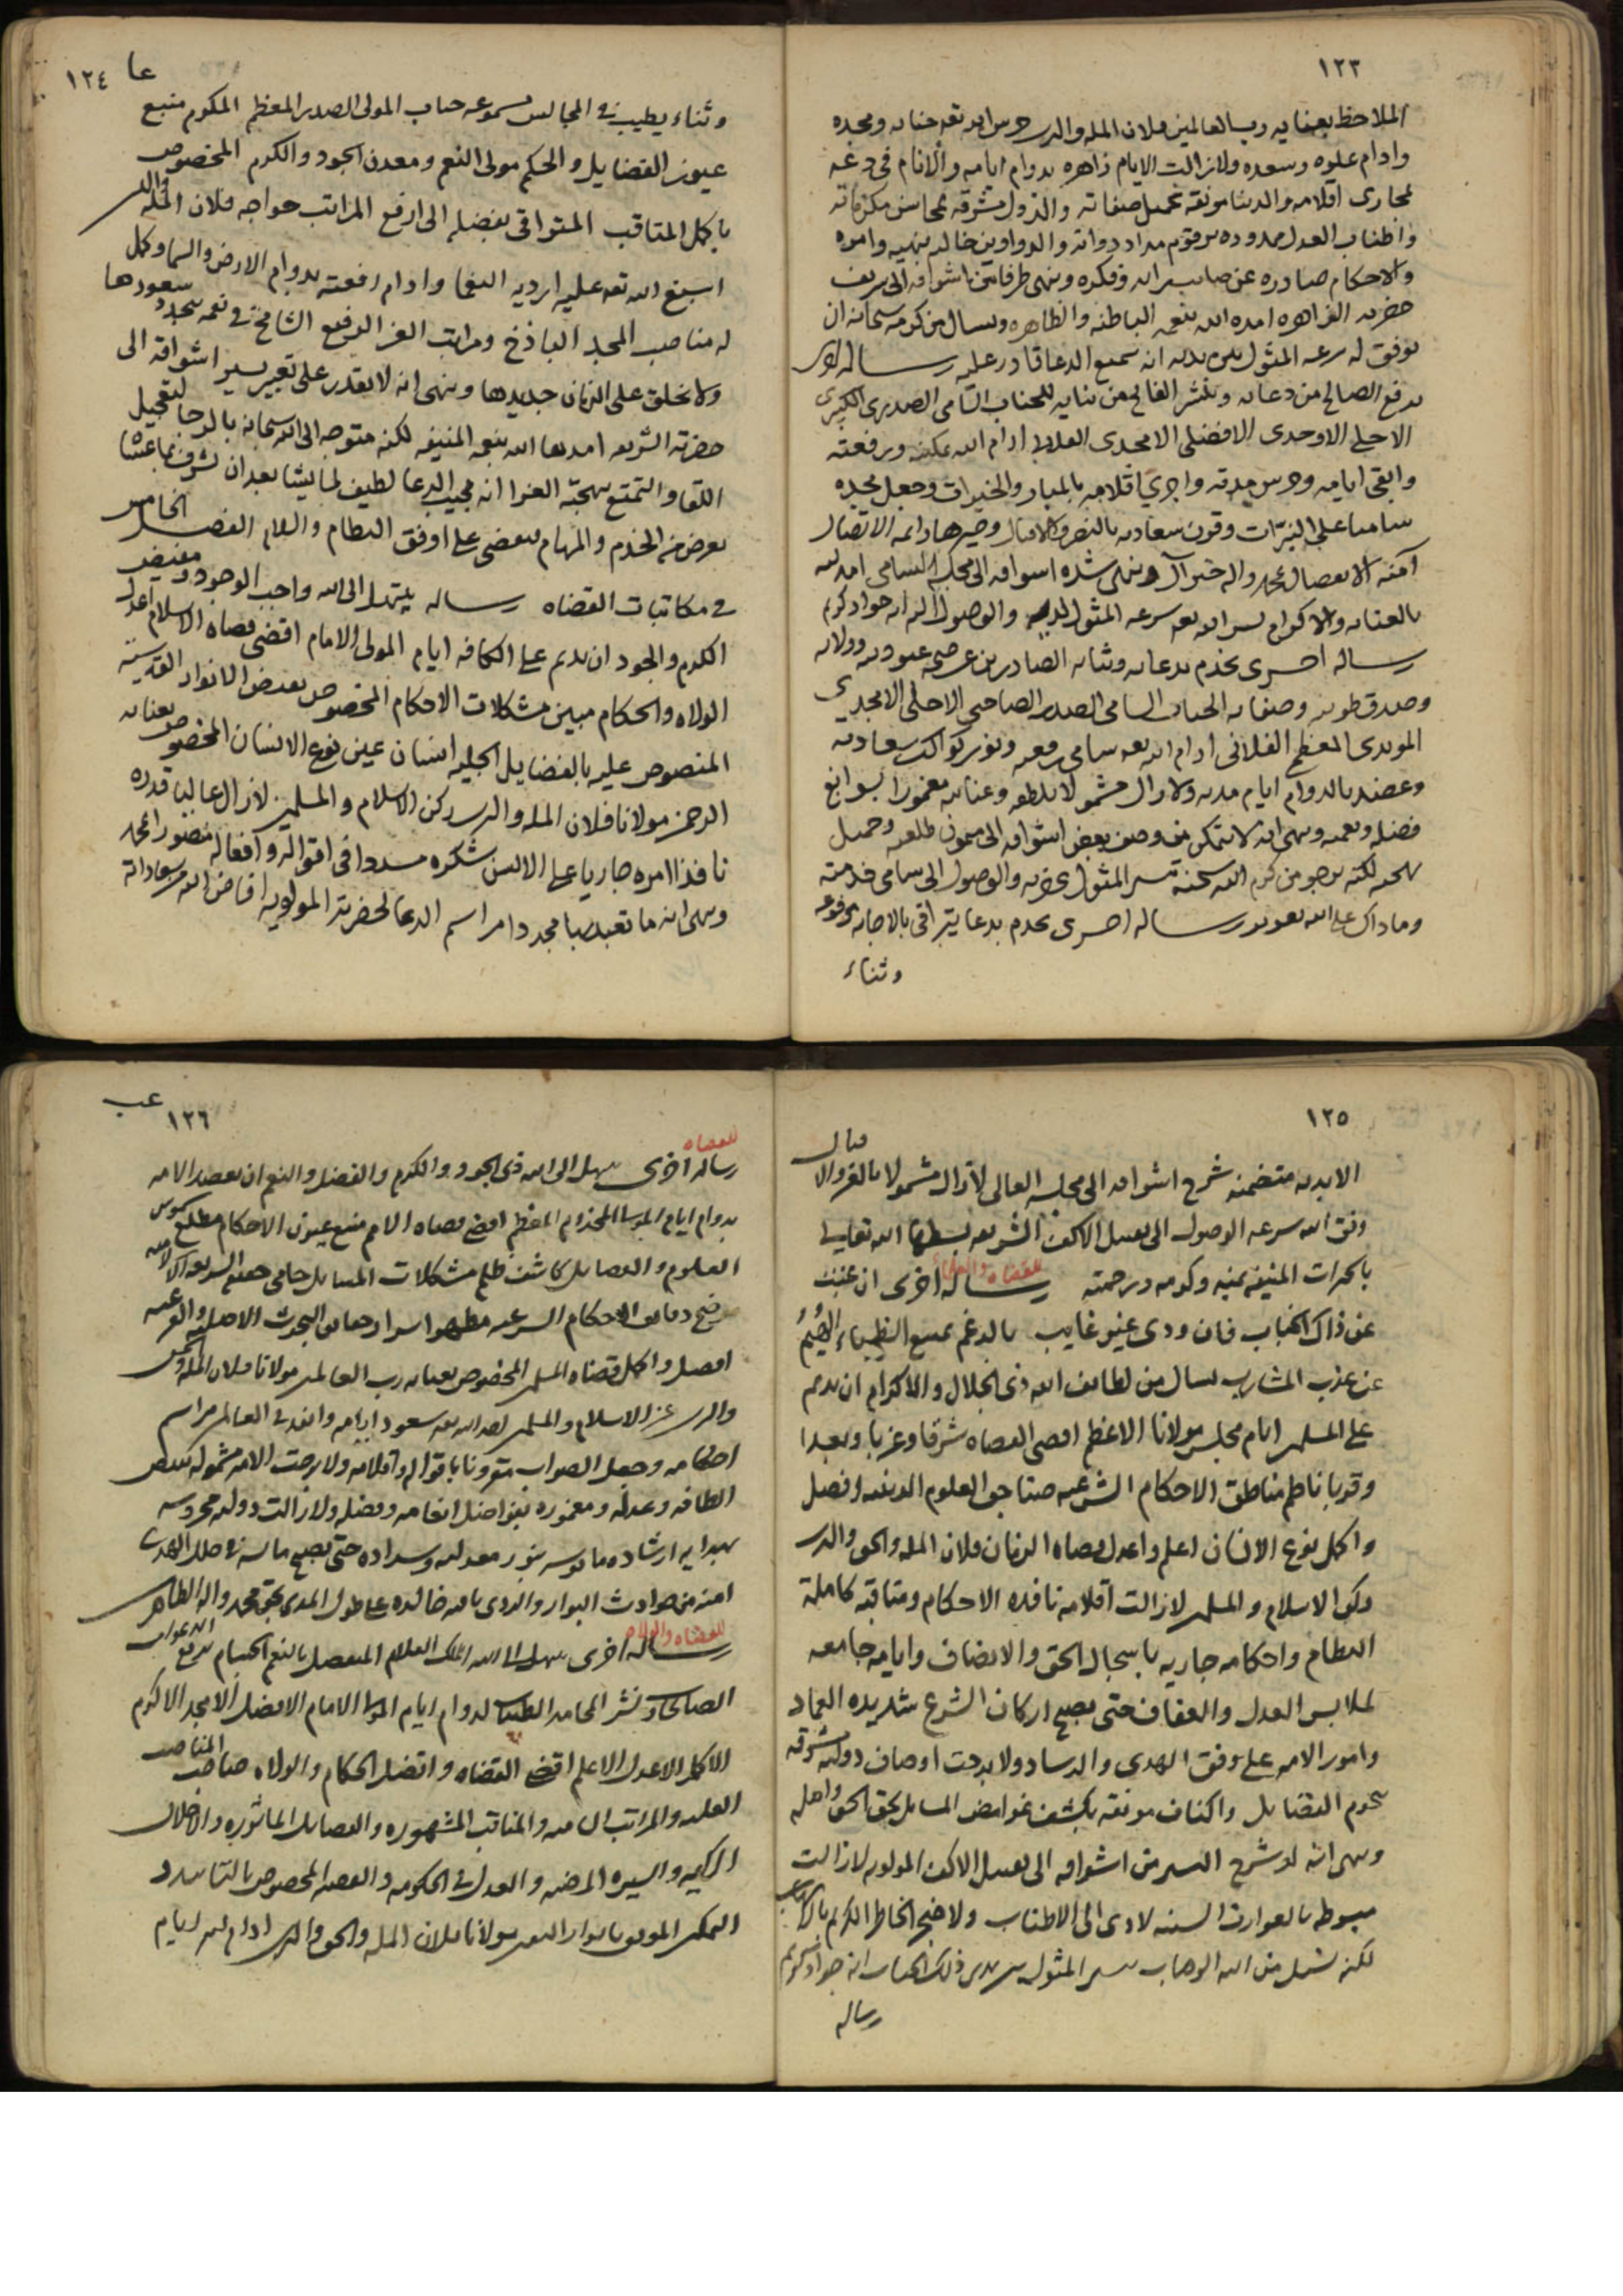 ١٢٣
الملاحظ بعنايه رب العالمين فلان المله والدين حرس الله تعه جنابه ومجده
وادام علوه وسعده ولا زالت الايام زاهره بدوام ايامه والانام في دعه
مجارى اقلامه والدنيا مونقه بجميل صفاته والدول مشرقه بمحاسن مكرماته
واطناب العدل ممدوده مرقوم مداد دواته والدواوين خاليه بنهيه وامره
والاحكام صادره عن صايب رايه وفكره وينهى طرفا من اشواقه الى شريف
حضرته الزاهره امده الله بنعمه الباطنه والظاهره ويسال من كرمه سبحانه ان
يوفق له سرعه المثول بين يديه انه سميع الدعا قادر عليه رساله اخرى
يرفع الصالح من دعايه وينشر الفايح من ثنايه للجناب السامى الصدرى الكبيرى
الاجلى الاوحدى الافضلى الامجدى العلايى ادام الله تمكينه ورفعته
وابقى ايامه وحرس مدته واجرى اقلامه بالمبار والخيرات وجعل مجده
ساميا على النيرات وقرن سعادته بالنصر والاقبال وصيرها دايمه الاتصال
آمنه الانفصال بمحمد واله خير آل وينهى شده اشواقه الى مجلسه السامى امده الله
بالعنايه والاكرام يسر الله تعه سرعه المثول لديه والوصول اليه انه جواد كريم
رساله اخرى يخدم بدعايه وثنايه الصادرين عن صحيح عبوديته وولايه
وصدق طويته وصفايه الجناب السامى الصدر الصاحبى الاجلى الامجدى
المويدى المعظم الفلانى ادام الله تعه سامى رفعته ونور كواكب سعادته
وعضد بالدوام ايام مدته ولا زال مشمولا بلطفه وعنايته مغمورا بسوابغ
فضله ونعمه وينهى انه لا يتمكن من وصف بعض اشواقه الى ميمون طلعته وجميل
بهجته لكنه يرجو من كرم الله سبحانه تيسر المثول بحضرته والوصول الى سامى خدمته
وما ذاك على الله بعزيز رساله اخرى يخدم بدعا يترافى بالاجابه مرفوعه
وثناء
عا ١٢٤
وثناء يطيب في المجالس مسموعه جناب المولى الصدر المعظم المكرم منبع
عيون الفضايل والحكم مولى النعم ومعدن الجود والكرم المخصوص
باكمل المناقب المتراقى بفضله الى ارفع المراتب خواجه فلان المله والدين
اسبغ الله تعه عليه ارديه النعما وادام رفعته بدوام الارض والسما وكمل
له مناصب المجد الباذخ ومراتب العز الرفيع الشامخ في نعمه يتجدد سعودها
ولا يخلق على الزمان جديدها وينهى انه لا يقدر على تعبير يسير اشواقه الى
حضرته الشريفه امدها الله بنعمه المنيفه لكنه متوجه الى الله سبحانه بالرجا لتعجيل
اللقا والتمتع ببهجته الغرا انه مجيب الدعا لطيف لما يشا بعد ان يشرف بما عساه
يعرض من الخدم والمهام ليقضى على اوفق النظام والسلام الفصل الخامس
في مكاتبات القضاه رساله يبتهل الى الله واجب الوجود ومفيض
الكرم والجود ان يديم على الكافه ايام المولى الامام اقضى قضاه الاسلام اعدل
الولاه والحكام مبين مشكلات الاحكام المخصوص بفيض الانوار القدسيه
المنصوص عليه بالفضايل الجليه انسان عين نوع الانسان المخصوص بعنايه
الرحمن مولانا فلان المله والدين ركن الاسلام والمسلمين لا زال عاليا قدره
نافذا امره جاريا على الالسن شكره مسددا في اقواله وافعاله منصورا بمحمد
وينهى انه ما تعبد صبا مجددا مراسم الدعا لحضرته المولويه افاض الله سعاداته
١٢٥
الابديه متضمنه شرح اشواقه الى مجلسه العالى لا زال مشمولا بالعز والاقبال
وفق الله سرعه الوصول الى تقبيل الاكف الشريفه بسطها الله تعالى
بالخيرات المنيفه بمنه وكرمه ورحمته رساله اخرى ان غبت
للقضاه والعلماء
عن ذاك الجناب فان ودى غير غايب بالرغم تمنع الظماء الهيم
عن عذب المشارب يسال من لطايف الله ذى الجلال والاكرام ان يديم
على المسلمين ايام مجلس مولانا الاعظم اقضى القضاه شرقا وغربا وبعدا
وقربا ناظم مناطق الاحكام الشرعيه صنّاجة العلوم الدينيه افضل
واكمل نوع الانسان اعلم واعدل قضاه الزمان فلان المله والحق والدين
ركن الاسلام والمسلمين لا زالت اقلامه نافذه الاحكام ومناقبه كاملة
النظام واحكامه جاريه باسجال الحق والانصاف وايامه جامعه
لملابس العدل والعفاف حتى يصبح اركان الشرع شديده العماد
وامور الامه على وفق الهدى والرشاد ولا برحت اوصاف دولته مشرقه
بنجوم الفضايل واكناف مونقه بكشف غوامض المسايل بحق الحق واهله
وينهى انه لو شرح اليسير من اشواقه الى تقبيل الاكف المولويه لا زالت
مبسوطه بالعوارف السنيه لادى الى الاطناب ولاضجر الخاطر الكريم
لكنه يسال من الله الوهاب تيسر المثول بين يدى ذلك الجناب انه جواد كريم
رساله
عب
١٢٦
للقضاه
رساله اخرى يبتهل الى الله ذى الجود والكرم والفضل والنعم ان يعضد الامه
بدوام ايام المولى المخدوم المعظم اقضى قضاه الامم منبع عيون الاحكام مطلع شموس
العلوم والفضايل كاشف ظلم مشكلات المسايل حامى حمى الشريعه
موضح دقايق الاحكام الشرعيه مظهر اسرار حقايق البحوث الاصليه والفرعيه
افضل واكمل قضاه المسلمين المخصوص بعنايه رب العالمين مولانا فلان المله والحق
والدين عز الاسلام والمسلمين ايد الله تعه سعود ايامه وانفذ في العالم مراسم
احكامه وجعل الصواب مقرونا باقواله واقلامه ولا برحت الامه مشموله بفيض
الطافه وعدله ومغموره بفواضل انعامه وفضله ولا زالت دوله محروسه
بهدايه ارشاده مانوسه بنور معدلته وسداده حتى يصبح مايسه في حلل الهدى
امنه من حوادث البوار والردى باقيه خالده على طول المدى بحق محمد واله الطاهرين
للقضاه والولاه
رساله اخرى يبتهل الى الله الملك العلام المتفضل بالنعم الجسام برفع الدعوات
الصالحات ونشر المحامد الطيبات لدوام ايام المولى الامام الافضل الامجد الاكرم
الاكمل الاعدل الاعلم اقضى القضاه وافضل الحكام والولاه صاحب المناصب
العليه والمراتب الساميه والمناقب المشهوره والفضايل الماثوره والاخلاق
الكريمه والسيره المرضيه والعدل في الحكومه والقضيه المخصوص بالتاييد و
التمكين الموفق بانوار اليقين مولانا فلان المله والحق والدين ادام الله ايام